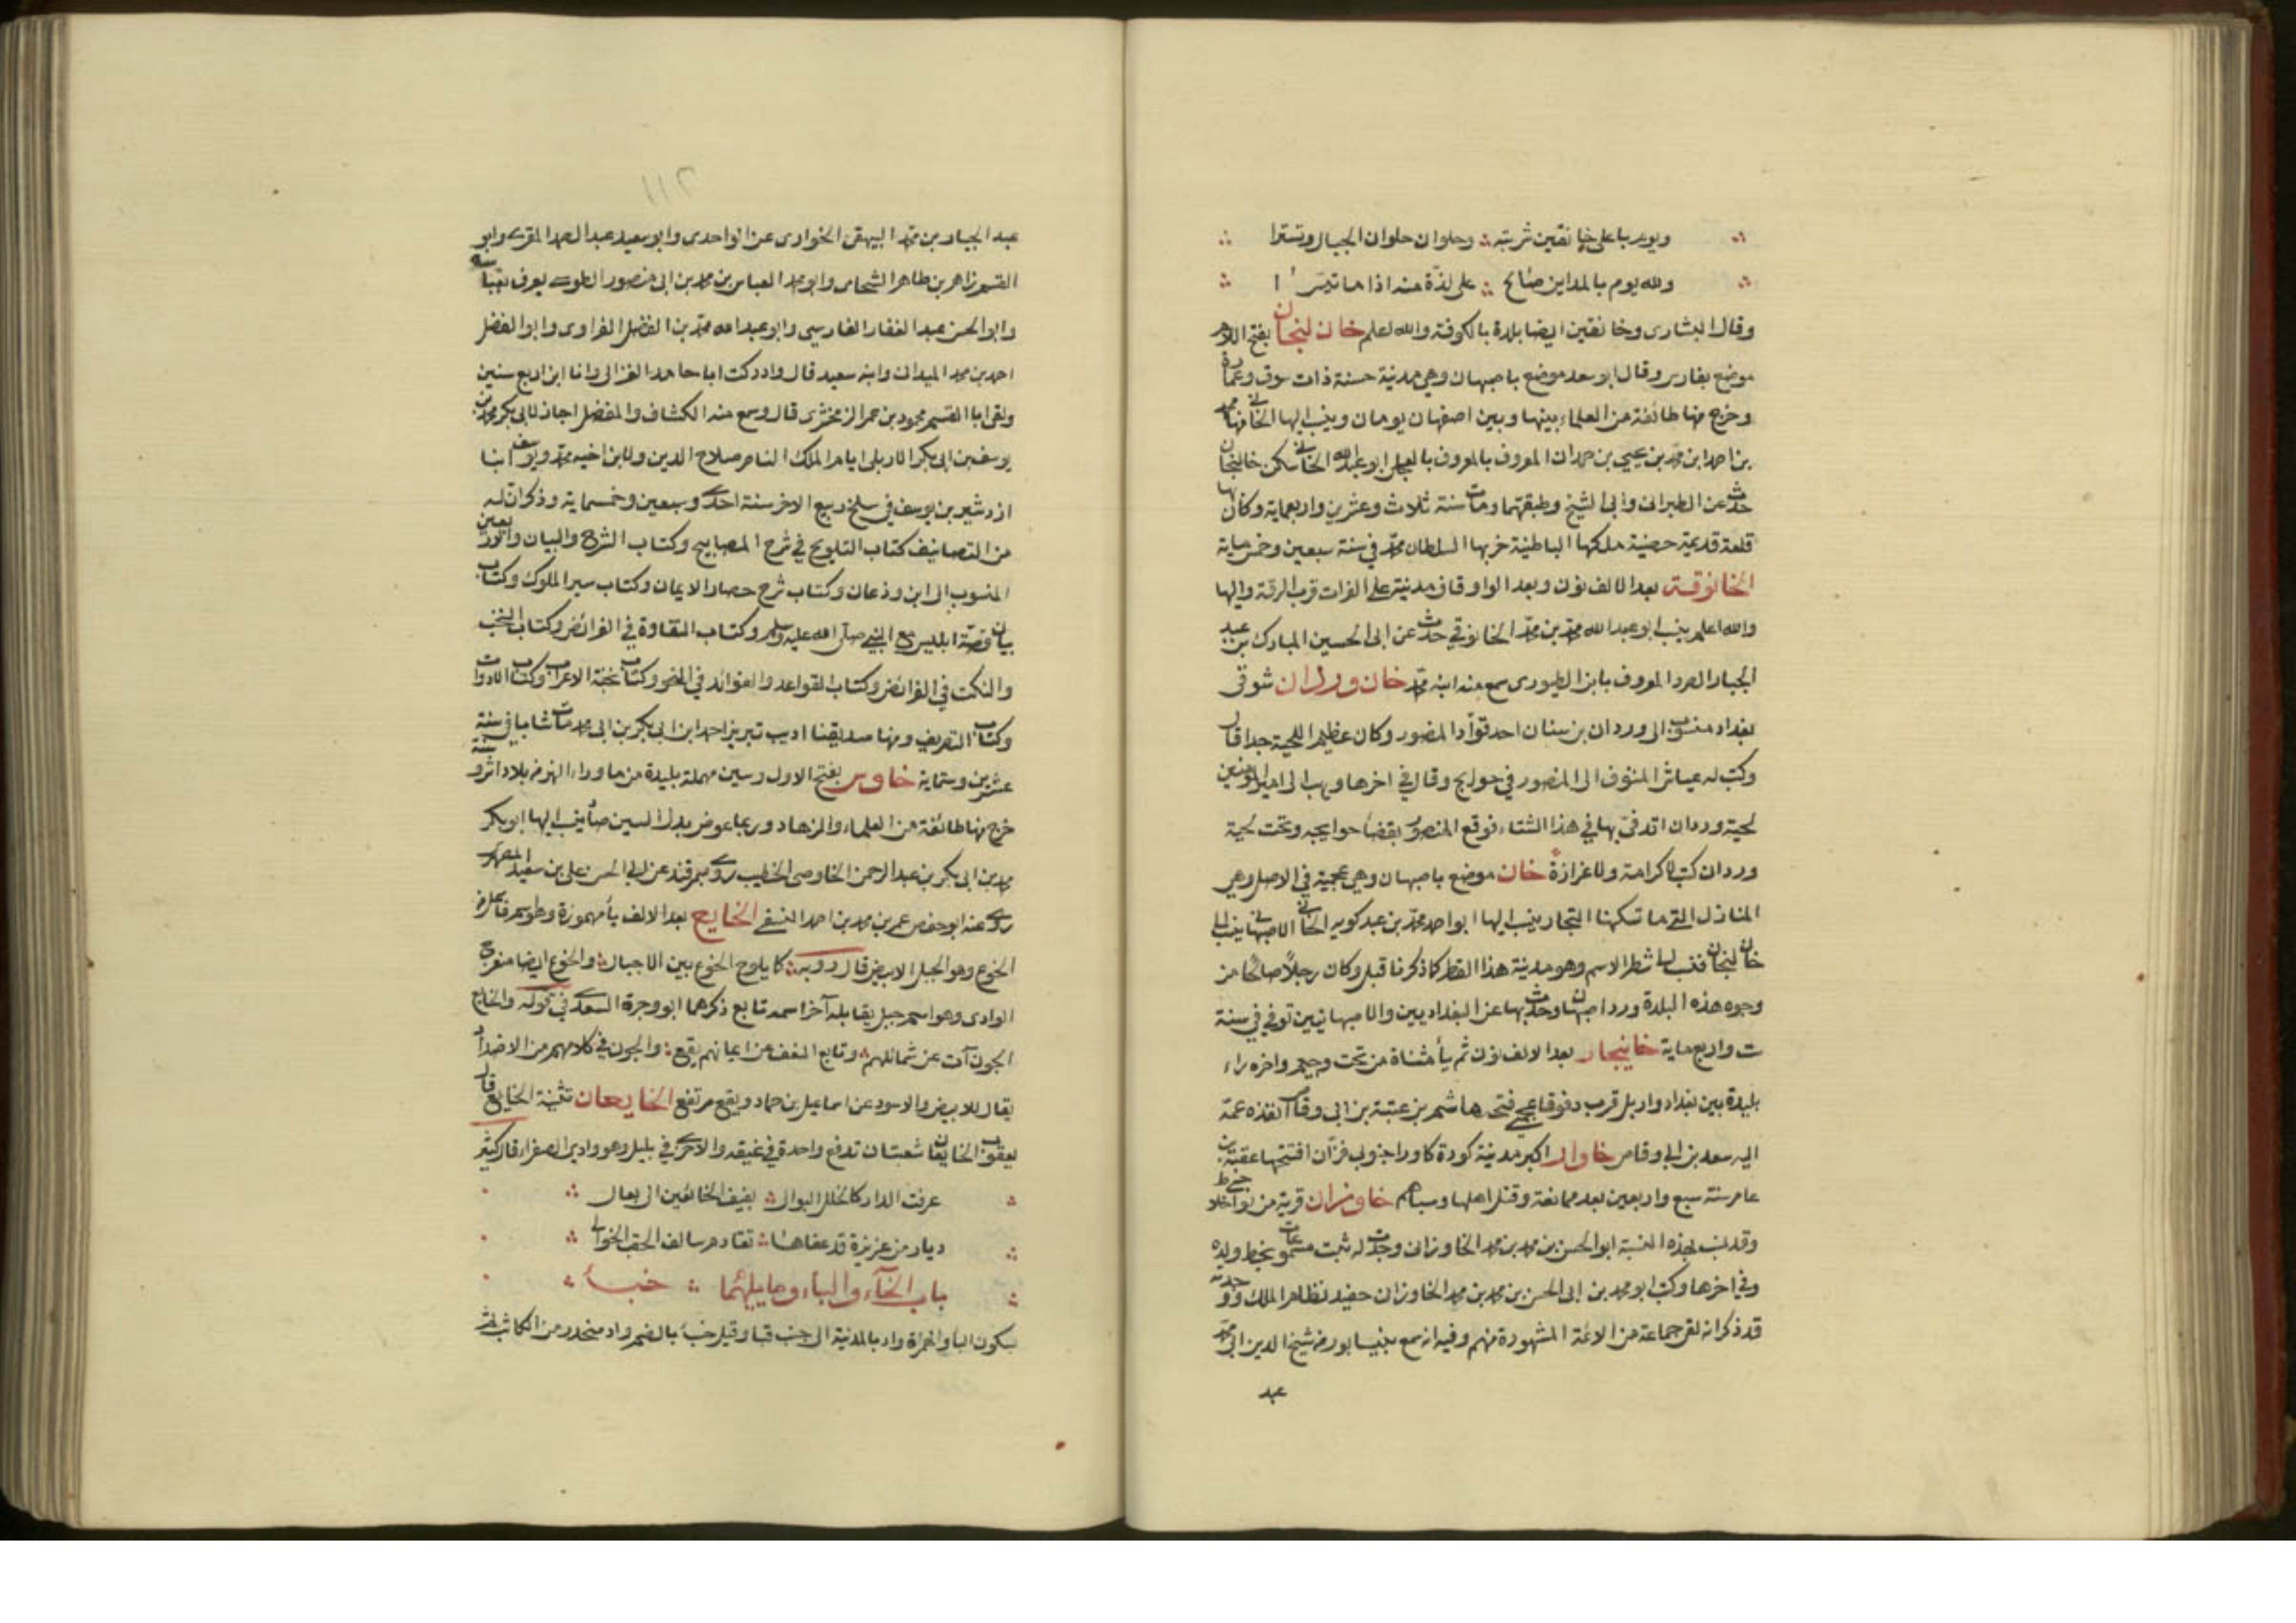 ويوم باعلى خانقين شربته وحلوان حلوان الجبال وتسترا
ولله يوم بالمداين صالح على لذة منه اذا ما تيسرا
وقال البشارى وخانقين ايضا بلدة بالكوفة والله اعلم خان لنجان بفتح اللام
موضع بفارس وقال ابو سعد موضع باصبهان وهي مدينة حسنة ذات سوق وعمارة
وخرج منها طائفة من العلماء بينها وبين اصفهان يومان وينسب اليها الخاني منها محمد
بن احمد ابن محمد بن يحيى بن حمدان المعروف بالمعروف بالعجلى ابو عبد الله الخاني سكن خالنجان
حدث عن الطبرانى وابى الشيخ وطبقتهما ومات سنة ثلاث وعشرين واربعماية وكان بها
قلعة قديمة حصينة ملكها الباطنية خربها السلطان محمد في سنة سبعين وخمس ماية
الخانوقة بعد الالف نون وبعد الواو قاف مدينة على الفرات قرب الرقة واليها
والله اعلم ينسب ابو عبد الله محمد بن محمد الخانوقي حدث عن ابى الحسين المبارك بن عبد
الجبار الصرد المعروف بابن الطيورى سمع منه ابنه محمد خان وردان شوقى
بغداد منسوب الى وردان بن سنان احد قواد المنصور وكان عظيم اللحية جدا قال
وكتب له عياش المنتوف الى المنصور في حوايج وقال في اخرها ويهب الى امير المؤمنين
لحية وردان اتدفى بها في هذا الشتاء فوقع المنصور بقضا حوايجه وتحت لحية
وردان كتب لا كرامة ولا عزازة خان موضع باصبهان وهي عجمية في الاصل وهي
المنازل التي ما تسكنها التجار ينسب اليها ابو احمد محمد بن عبد كويه الخاني الاصبهاني ينسب الى
خان لنجان فنسب الى شطر الاسم وهو مدينة هذا القطر كما ذكرنا قبل وكان رجلا صالحا من
وجوه هذه البلدة ورد اصبهان وحدث بها عن البغداديين والاصبهانيين توفي في سنة
ت واربع ماية خانيجار بعد الالف نون ثم يا مثناة من تحت وجيم واخره راء
بليدة بين بغداد واربل قرب دقوقا فتحها هاشم بن عتبة بن ابى وقاص انفذه عمه
اليه سعد بن ابى وقاص خاوار اكبر مدينة كورة كاور جنوبى فزان افتتحها عقبة بن
عامر سنة سبع واربعين بعد ممانعة وقتل اهلها وسباهم خاوزان قرية من نواحى خلاط
وقد نسب بهذه النسبة ابو الحسن بن محمد بن محمد الخاوزانى وجدت له ثبت مسموعات بخط ولده
وفي اخرها وكتب ابو محمد بن ابى الحسن بن محمد بن محمد الخاوزان حفيد نظام الملك
قد ذكر انه لقى جماعة من الائمة المشهورة منهم وفيه انه سمع بنيسابور من شيخ الدين ابى محمد
عبد
١١٢
عبد الجبار بن محمد البيهقى الخوارى عن الواحدى وابو سعيد عبد الصمد المقرى وابو
القسم زاهر بن طاهر الشحامى وابو محمد العباس بن محمد بن ابى منصور الطوسى يعرف بعباسه
وابو الحسن عبد الغفار الفارسى وابو عبد الله محمد بن الفضل الفراوى وابو الفضل
احمد بن محمد الميدانى وابنه سعيد قال وادركت ابا حامد الغزالى وانا ابن اربع سنين
ولقى ابا القسم محمود بن عمر الزمخشرى قال وسمع منه الكشاف والمفصل اجاز لابى بكر محمد بن
يوسف بن ابى بكر الاربلى ايام الملك الناصر صلاح الدين ولابن اخيه محمد ويوسف ابنا
ازدشير بن يوسف في سلخ ربيع الاخر سنة احدى وسبعين وخمسماية وذكر ان له
من التصانيف كتاب التلويح في شرح المصابيح وكتاب الشرح والبيان
المنسوب الى ابن ودعان وكتاب شرح حصار الايمان وكتاب سير الملوك وكتاب
بيان قصة ابليس مع النبي صلى الله عليه وسلم وكتاب النقاوة في الفرائض وكتاب النخب
والنكت في الفرائض وكتاب القواعد والفوائد في النحو وكتاب نخبة الاعراب وكتاب الادوات
وكتاب التصريف ومنها صديقنا اديب تبريز احمد ابن ابى بكر بن ابى محمد مات شابا في سنة
عشرين وستماية خاوس بفتح الاول وسين مهملة بليدة من ما وراء النهر من بلاد اشرو سنه
خرج منها طائفة من العلماء والزهاد وربما عوض بدل السين صاد ينسب اليها ابو بكر
محمد بن ابى بكر بن عبد الرحمن الخاوصى الخطيب روى بسمرقند عن ابى الحسن على بن سعيد المطهرى
روى عنه ابو حفص عمر بن محمد بن احمد النسفى الخايع بعد الالف يا مهموزة وهو اسم فاعل من
الخوع وهو الجبل الابيض قال روبه كما يلوح الخوع بين الاجبال والخوع ايضا منعرج
الوادى وهو اسم جبل يقابله آخر اسمه تابع ذكرهما ابو وجزة السعدى في قوله والخايع
الجون آت عن شمائلهم وتابع النعف عن ايمانهم يقع والجون في كلامهم من الاضداد
يقال للابيض والاسود عن اسماعيل بن حماد ويقع مرتفع الخايعان تثنية الخايع قال
يعقوب الخايعان شعبتان تدفع واحدة في غيقه والاخرى في يليل وهو وادى الصفراء قال كثير
عرفت الدار كالخلل البوالى بفيف الخائعين الى بعال
ديار من عزيزة قد عفاها تقادم سالف الحقب الخوالى
باب الخآء والباء وما يليهما خبأ
بسكون الباء والهمزة واد بالمدينة الى جنب قبا وقيل خبأ بالضم واد منحدر من الكاثب ثم